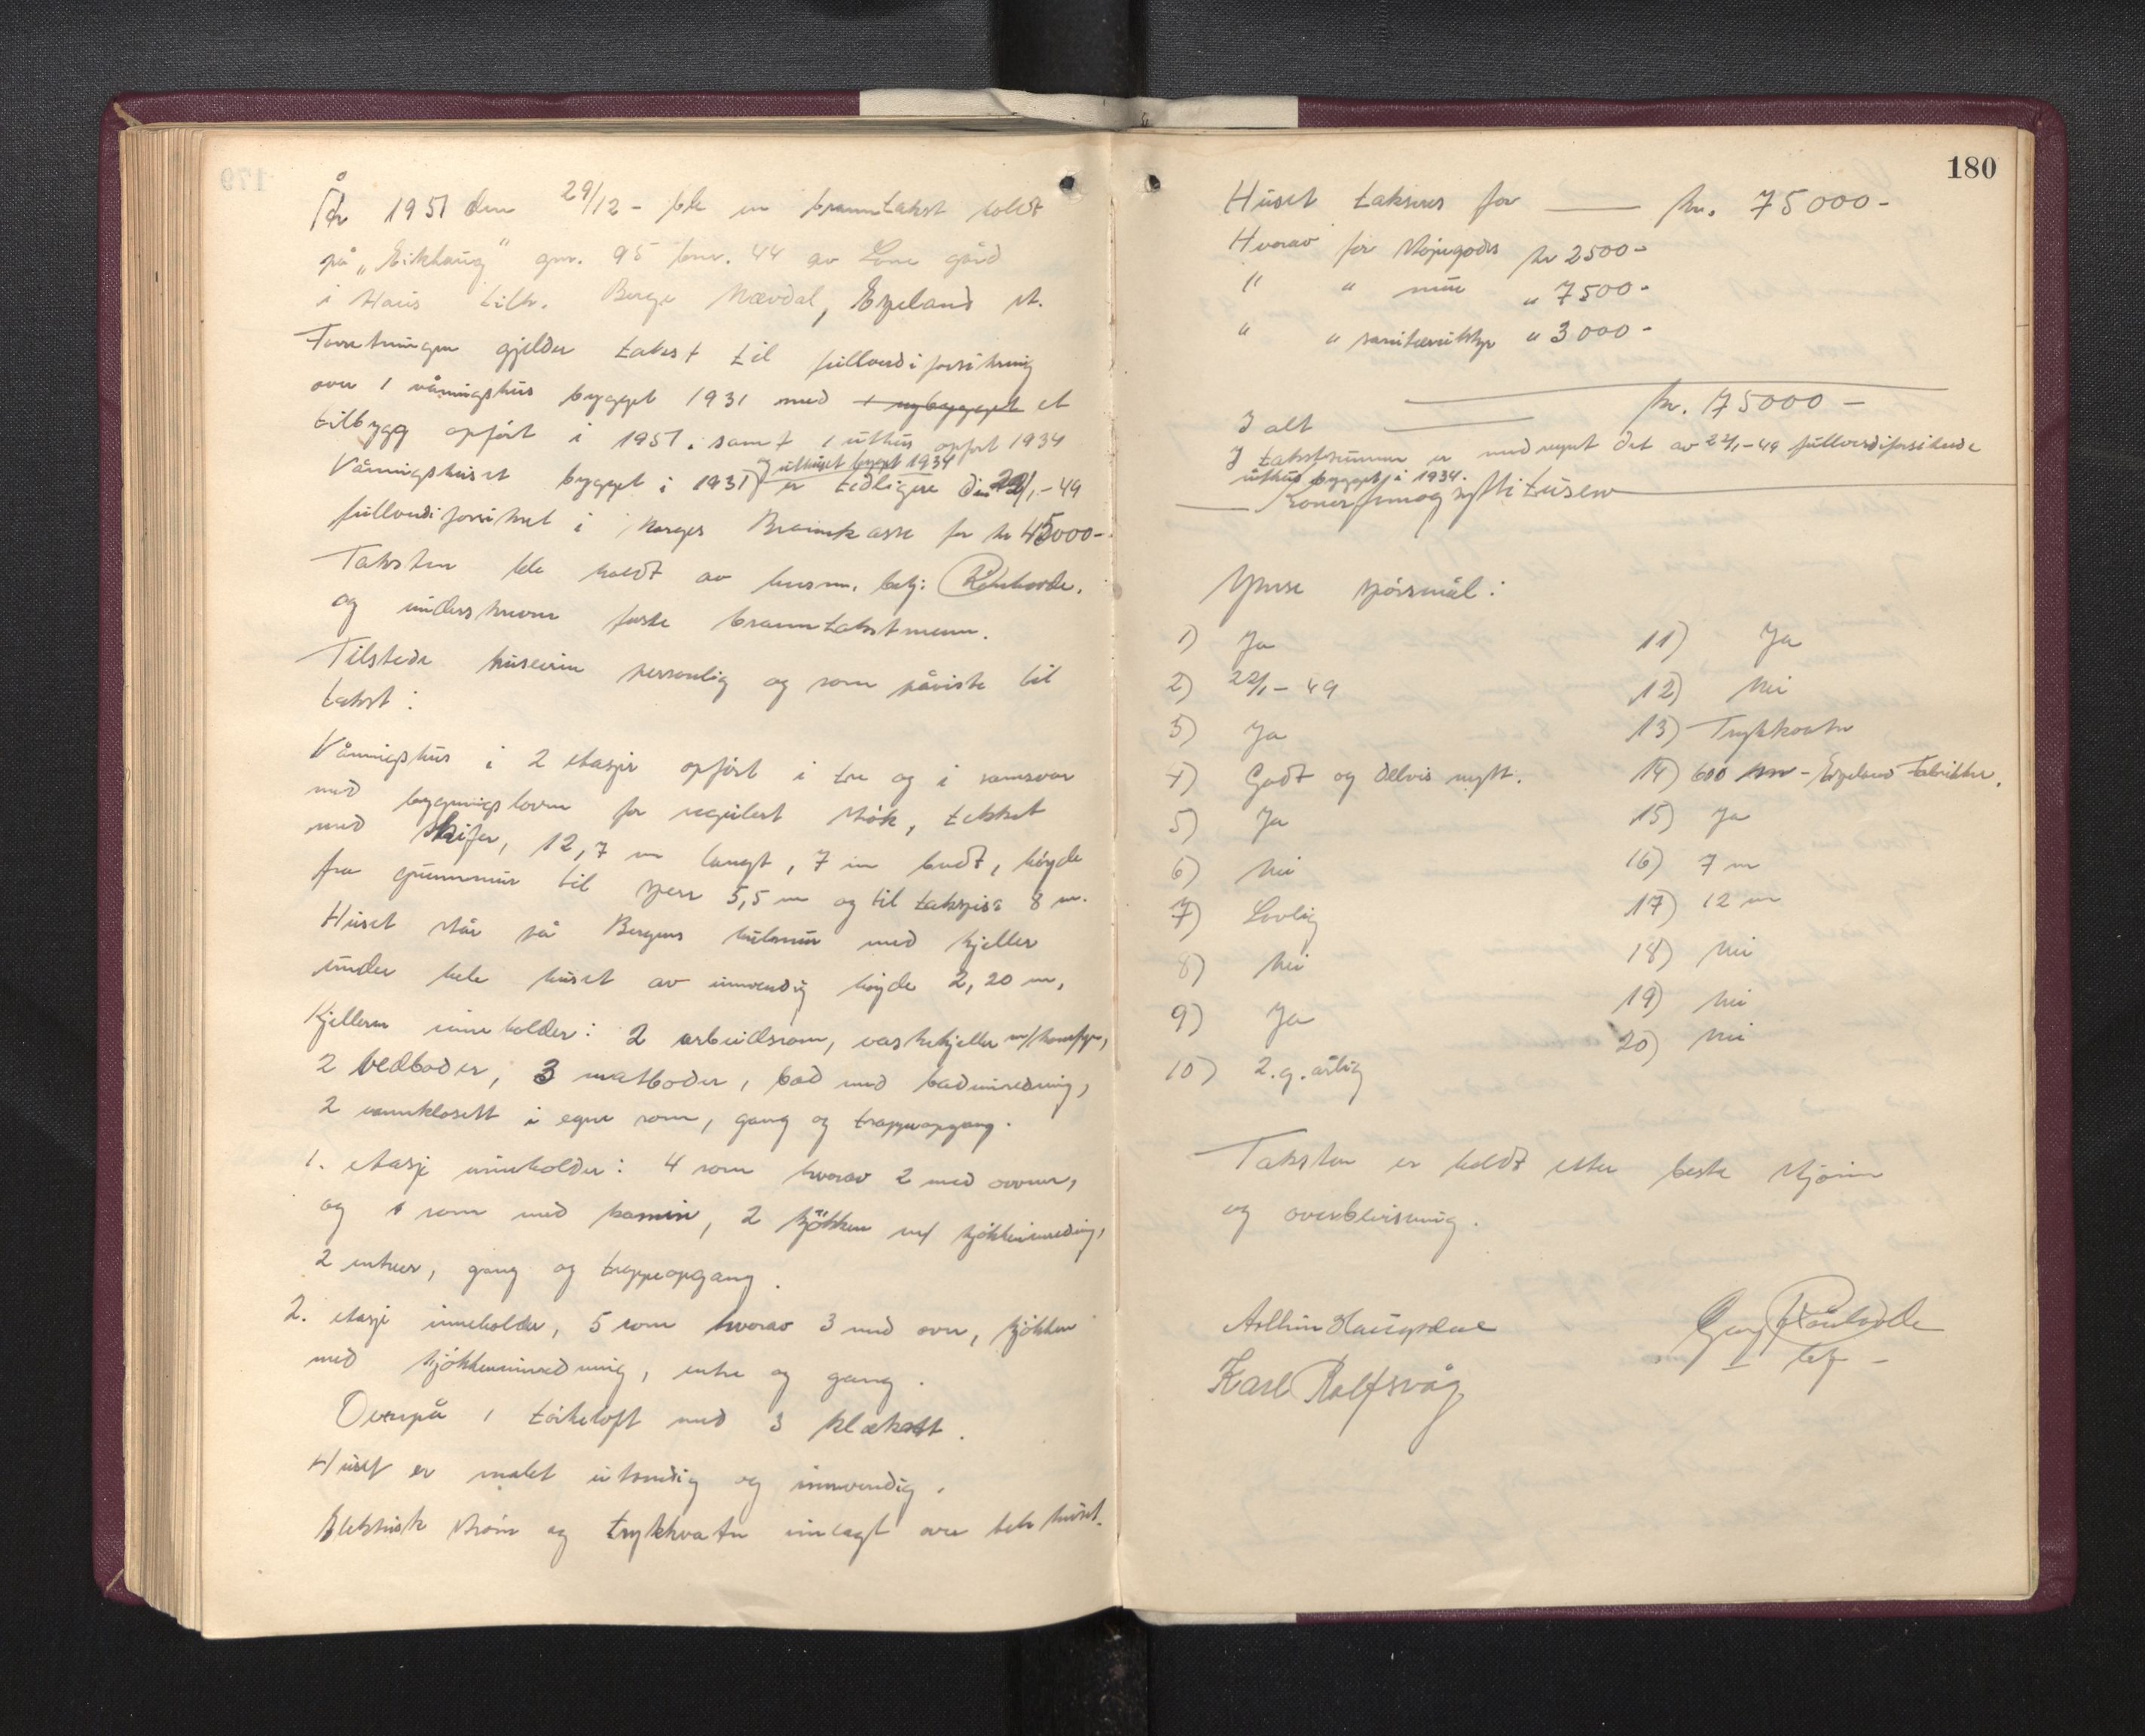 År 1951 den 29/12 - ble en branntakst holdt
på „Eikhaug" gnr. 95 bnr. 44 av Lone gård
i Haus tilh. Berge Nævdal, Espeland st.
Forretningen gjelder takst til fullverdiforsikring
over 1 våningshus bygget 1931 med 1 nybygget et
tilbygg opført i 1951. samt 1 uthus opført 1934
og uthuset bygget 1934
Våningshuset bygget i 1931 er tidligere den 22/1-49
fullverdiforsikret i Norges Brannkasse for kr 45000-
Taksten ble holdt av lensm. betj: Raunborde.
og underskrevne faste branntakstmenn.
Tilstede huseieren personlig og som påviste til
takst:
Våningshus i 2 etasjer opført i tre og i samsvar
med bygningsloven for regulert strøk, tekket
med skifer, 12,7 m langt, 7 m bredt, høyde
fra grunnmur til gesims 5,5 m og til takspiss 8 m.
Huset står på Bergens hulmur med kjeller
under hele huset av innvendig høyde 2,20 m,
Kjelleren inneholder: 2 arbeidsrom, vaskekjeller m/komfyr,
2 vedboder, 3 matboder, bad med badinnredning,
2 vannklosett i egne rom, gang og trappeopgang.
1. etasje inneholder: 4 rom hvorav 2 med ovner,
og 1 rom med kamin, 2 kjøkken m/ kjøkkeninnredning,
2 entreer, gang og trappeopgang.
2. etasje inneholder, 5 rom hvorav 3 med ovn, kjøkken
med kjøkkeninnredning, entre og gang.
Ovenpå 1 tørkeloft med 3 klækott.
Huset er malet utvendig og innvendig.
Elektrisk strøm og trykkvatn innlagt over hele huset.
180
Huset takseres for — kr. 75000-
Hvorav for støpegods kr 2500-
" " mur " 7500-
" " sanitærutstyr " 3000-
I alt — kr. 75000 -
I takstsummen er medregnet det av 22/1-49 fullverdiforsikrede
uthus bygget i 1934.
— Kroner femogsyttitusen —
Ymse spørsmål:
1) Ja
2) 22/1 - 49
3) Ja
4) Godt og delvis nytt.
5) Ja
6) Nei
7) Lovlig
8) Nei
9) Ja
10) 2. g. årlig
11) Ja
12) Nei
13) Trykkvatn
14) 600 m - Espeland Fabrikker.
15) Ja
16) 7 m
17) 12 m
18) Nei
19) Nei
20) Nei
Taksten er holdt etter beste skjønn
og overbevisning.
Haugsdal
Karl Rolfsvåg
betj -